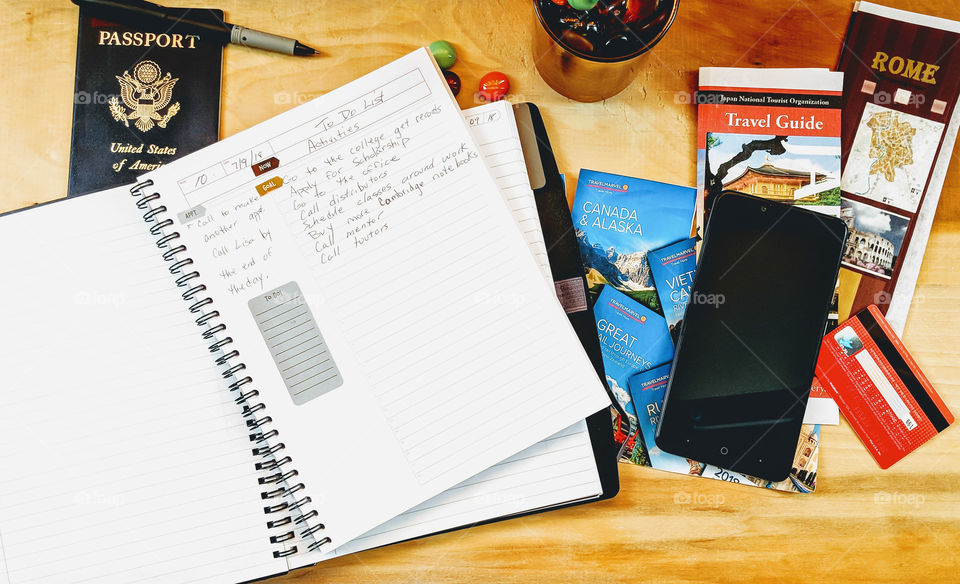 PASSPORT
United States
of America
To Do List
Activities
10
7/9/18
NOW
GOAL
Go to the college get records
Apply for scholarship
Go to the office
Call distributors
Schedule classes around work
Buy more Cambridge notebooks
Call mentor
Call tutors
APPT
Call to make
another appt.
Call Lisa by
the end of
the day.
TO DO:
Japan National Tourist Organization
Travel Guide
ROME
TRAVELMARVEL
CANADA
& ALASKA
TRAVELMARVEL
TRAVELMARVEL
GREAT
JOURNEYS
TRAVELMARVEL
2019
foap